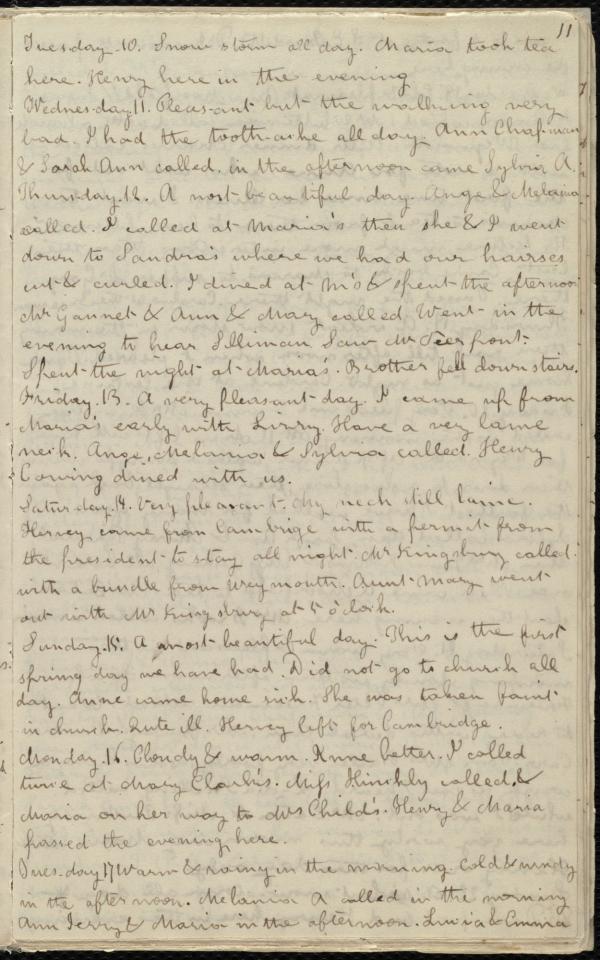 11
Tuesday 10. Snow storm all day. Maria took tea
here. Henry here in the evening
Wednesday 11. Pleasant but the walking very
bad. I had the tooth-ache all day. Ann Chapman
& Sarah Ann called. in the afternoon came Sylvia A.
Thursday. 12. A most beautiful day. Ange & Melania
called. I called at Maria's then she & I went
down to Sandra's where we had our hairses
cut & curled. I dined at M's & spent the afternoon
Mr Gannet & Ann & Mary called. Went in the
evening to hear Silliman. Saw Mr
Spent the night at Maria's. Brother fell down stairs.
Friday. 13. A very pleasant day. I came up from
Maria's early with Lizzy. Have a very lame
neck. Ange, Melania & Sylvia called. Henry
Coming dined with us.
Saturday. 14. Very pleasant. My neck still lame.
Hervey came from Cambrige with a permit from
the president to stay all night. Mr Kingsbury called
with a bundle from Weymouth. Aunt Mary went
out with Mr Kingsbury at 5 o'clock.
Sunday. 15. A most beautiful day. This is the first
spring day we have had. Did not go to church all
day. Anne came home sick. She was taken faint
in church. Quite ill. Hervey left for Cambridge.
Monday. 16. Cloudy & warm. Anne better. I called
twice at Mary Clark's. Miss Hinckly called, &
Maria on her way to Mrs Child's. Henry & Maria
passed the evening here.
Tuesday 17 Warm & rainy in the morning. Cold & windy
in the afternoon. Melania A called in the morning
Ann Terry & Maria in the afternoon. Lucia & Emma